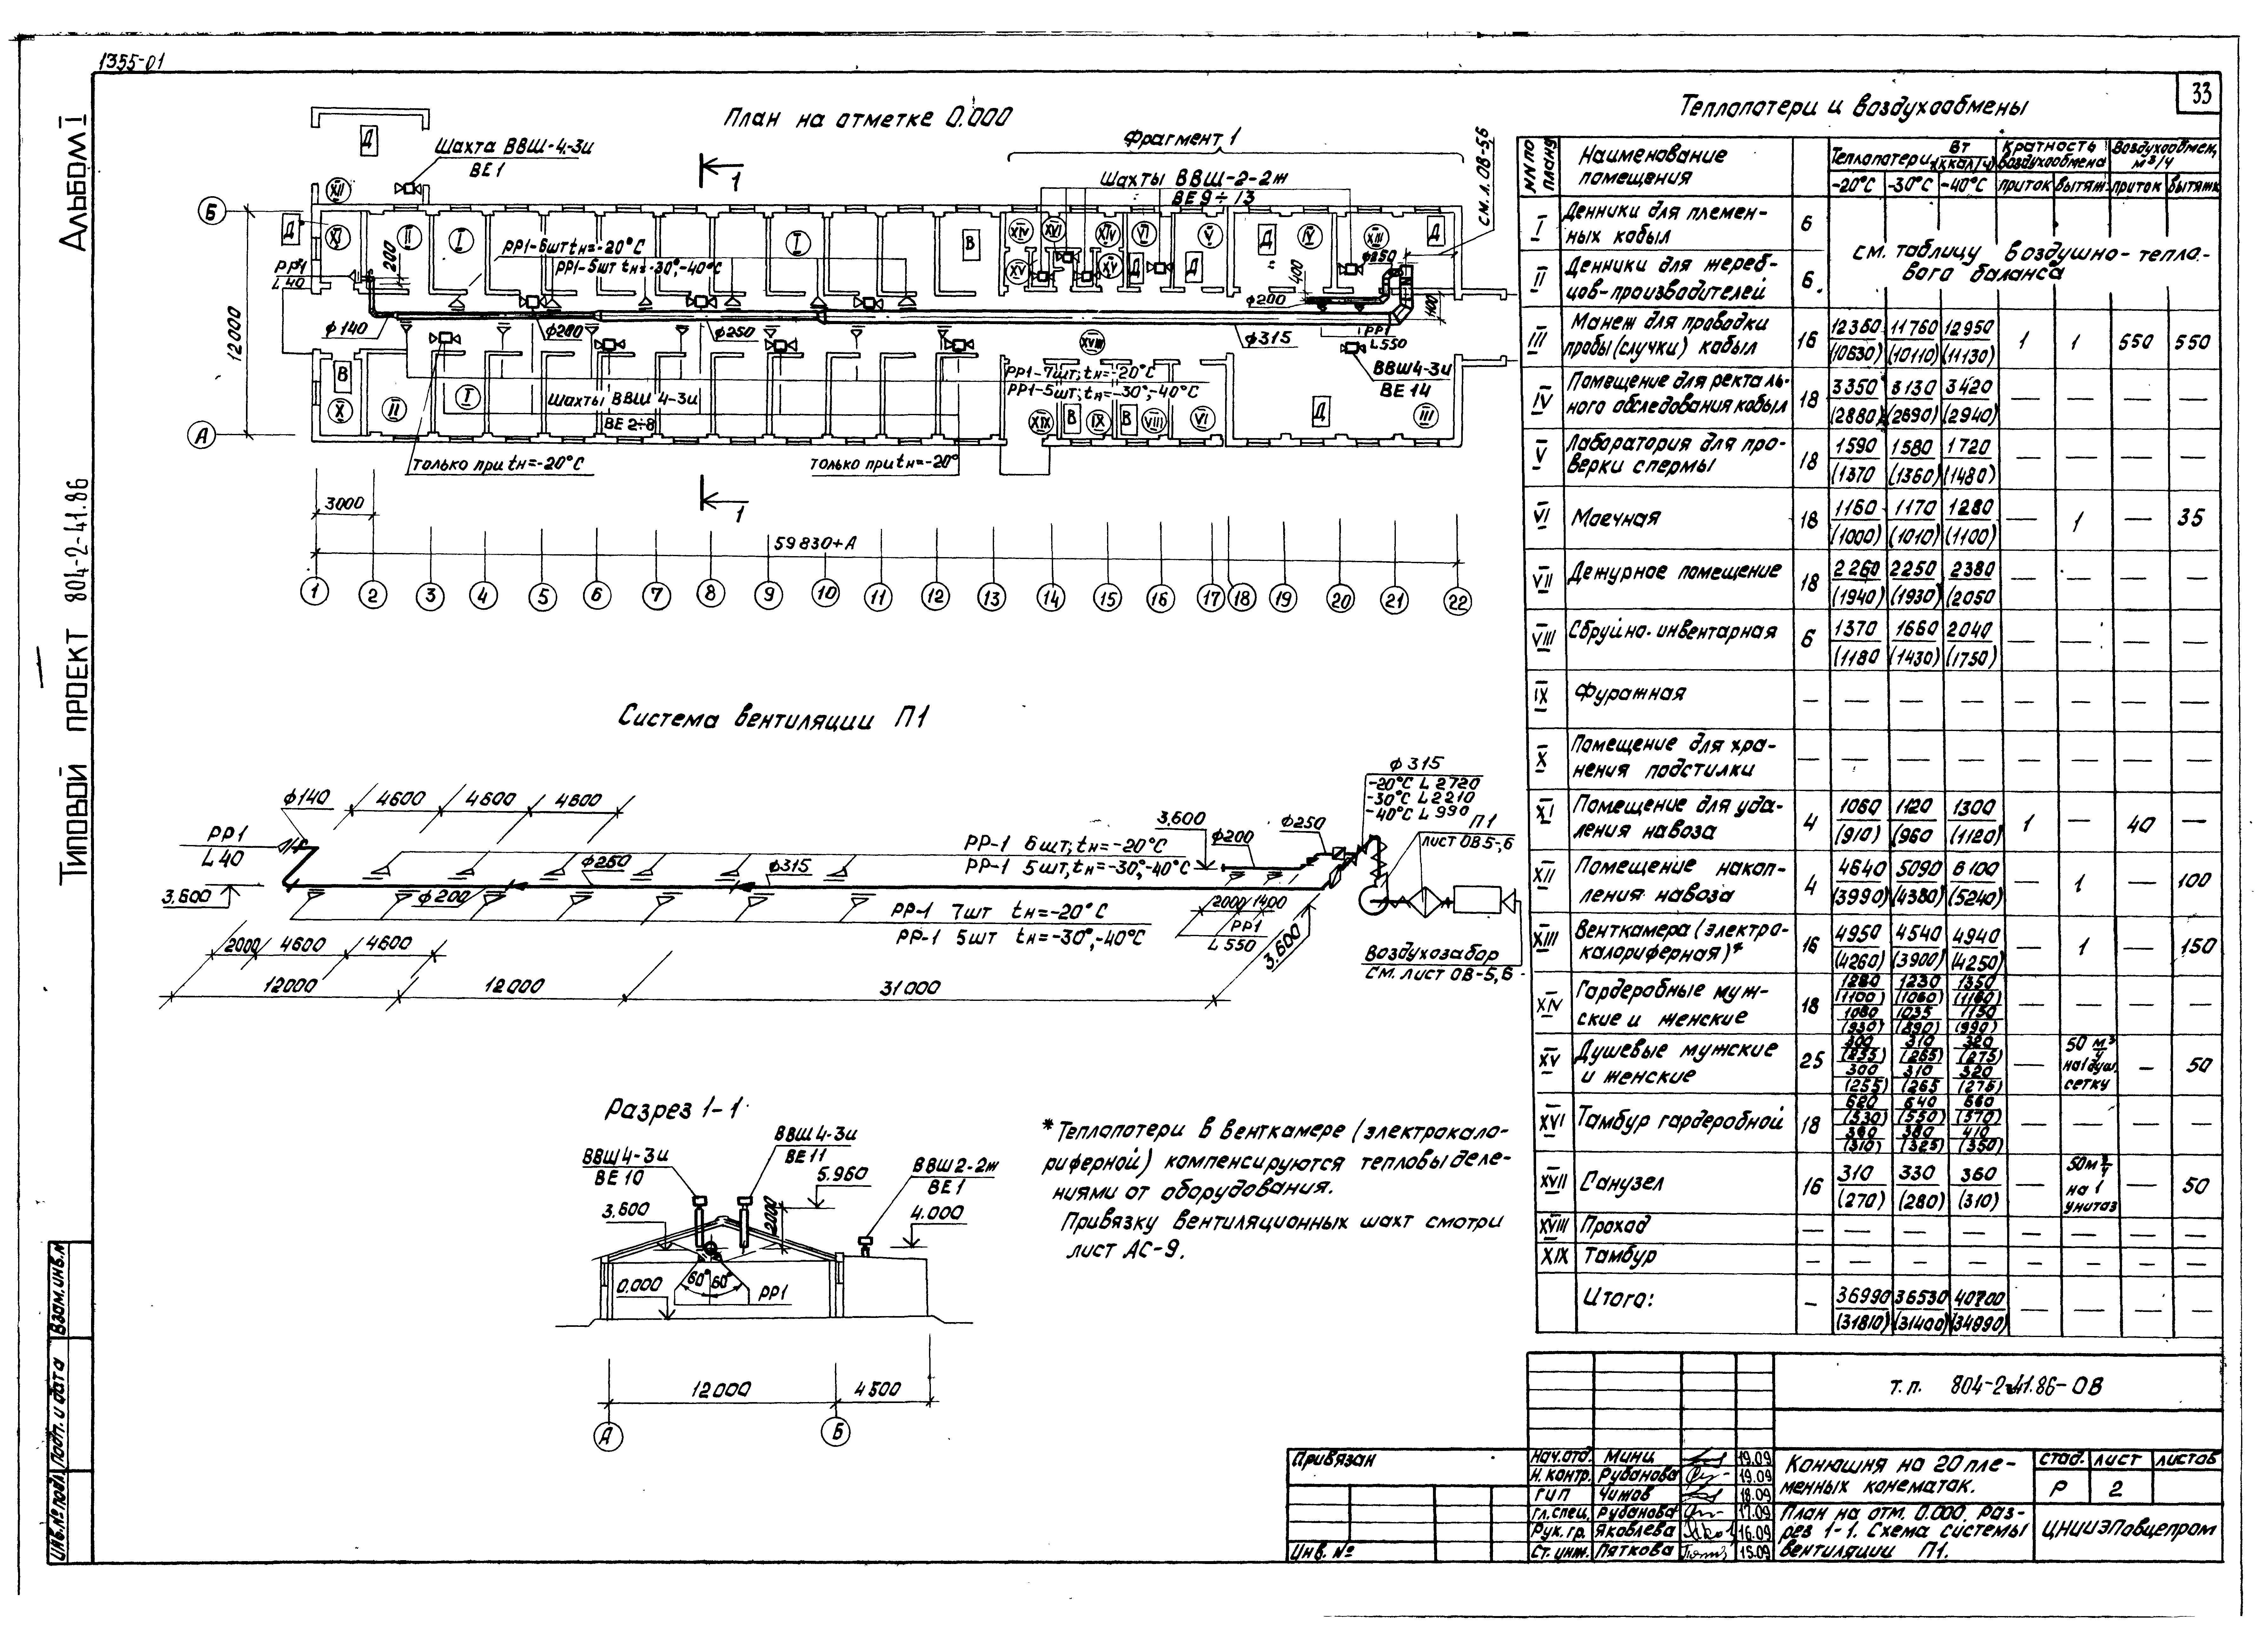 1355-01
33
Альбом I
Типовой проект 804-2-41.86
План на отметке 0.000
Шахта ВВШ-4-3и
ВЕ1
Фрагмент 1
Шахты ВВШ-2-2ж
ВЕ 9÷13
см. л. ОВ-5,6
РР1-6шт tн=-20°С
РР1-5шт tн=-30°,-40°С
РР1
L 40
200
400
1400
ф140
ф200
ф250
ф315
ф200
ф250
РР1
L550
ВВШ4-3и
ВЕ 14
РР1-7шт; tн=-20°С
РР1-5шт; tн=-30°,-40°С
Шахты ВВШ 4-3и
ВЕ 2÷8
только при tн=-20°С
только при tн=-20°
12000
Б
А
1
1
3000
59830+А
1 2 3 4 5 6 7 8 9 10 11 12 13 14 15 16 17 18 19 20 21 22
Система вентиляции П1
ф140
4600 4600 4600
РР1
L 40
3.600
ф200
ф250
ф315
РР-1 6шт; tн=-20°С
РР-1 5шт, tн=-30°,-40°С
РР-1 7шт tн=-20°С
РР-1 5шт tн=-30°,-40°С
3.600
ф200
ф250
ф315
-20°С L 2720
-30°С L 2210
-40°С L 990
П1
лист ОВ5-,6
2000 1400
РР1
L 550
3.600
Воздухозабор
см. лист ОВ-5,6
2000 4600 4600
12000 12000 31000
Разрез 1-1
ВВШ4-3и
ВЕ 10
ВВШ 4-3и
ВЕ 11
5.960
ВВШ2-2ж
ВЕ1
4.000
3.600
2000
0.000
60° 60°
РР1
12000 4500
А Б
* Теплопотери в венткамере (электрокало-
риферной) компенсируются тепловыделе-
ниями от оборудования.
Привязку вентиляционных шахт смотри
лист АС-9.
Теплопотери и воздухообмены
NN по плану Наименование помещения Теплопотери, Вт (ккал/ч) Кратность воздухообмена Воздухообмен, м³/ч
-20°С -30°С -40°С приток вытяж. приток вытяж.
I Денники для племен-
ных кобыл 6
см. таблицу воздушно-тепло-
вого баланса
II Денники для жереб-
цов-производителей 6
III Манеж для проводки 12360 11760 12950
пробы (случки) кобыл 16 (10630) (10110) (11130) 1 1 550 550
IV Помещение для ректаль- 3350 3130 3420
ного обследования кобыл 18 (2880) (2690) (2940) — — — —
V Лаборатория для про- 1590 1580 1720
верки спермы 18 (1370 (1360) (1480) — — — —
VI Моечная 18 1160 1170 1280 — 1 — 35
(1000) (1010) (1100)
VII Дежурное помещение 18 2260 2250 2380 — — — —
(1940) (1930) (2050
VIII Сбруйно-инвентарная 6 1370 1660 2040 — — — —
(1180 (1430) (1750)
IX Фуражная — — — — — — — —
X Помещение для хра-
нения подстилки — — — — — — — —
XI Помещение для уда- 1060 1120 1300
ления навоза 4 (910) (960 (1120) 1 — 40 —
XII Помещение накоп- 4640 5090 6100
ления навоза 4 (3990) (4380) (5240) — 1 — 100
XIII Венткамера (электро- 4950 4540 4940
калориферная)* 16 (4260) (3900) (4250) — 1 — 150
XIV Гардеробные муж- 1280 1230 1350
(1100) (1060) (1160)
ские и женские 18 1080 1035 1150 — — — —
(930) (890) (990)
XV Душевые мужские 300 310 320 50 м³/ч
(255) (265) (275)
и женские 25 300 310 320 — на 1 душ. — 50
(255) (265 (275) сетку
XVI Тамбур гардеробной 18 620 640 660 — — — —
(530) (550) (570)
360 380 410
(310) (325) (350)
XVII Санузел 16 310 330 360 — 50 м³/ч на 1 унитаз — 50
(270) (280) (310)
XVIII Проход — — — — — — — —
XIX Тамбур — — — — — — — —
Итого: — 36990 36530 40700 — — — —
(31810) (31400) (34990)
т.п. 804-2-41.86-ОВ
Привязан
Инв. №
Нач.отд. Минц 19.09
Н. контр. Рубанова 19.09
ГИП Чижов 18.09
Гл.спец. Рубанова 17.09
Рук. гр. Яковлева 16.09
Ст. инж. Пяткова 15.09
Конюшня на 20 пле-
менных конематок.
стад. лист листов
Р 2
План на отм. 0.000. Раз-
рез 1-1. Схема системы
вентиляции П1.
ЦНИИЭПовцепром
Взам. инв. №
Подп. и дата
Инв. № подл.